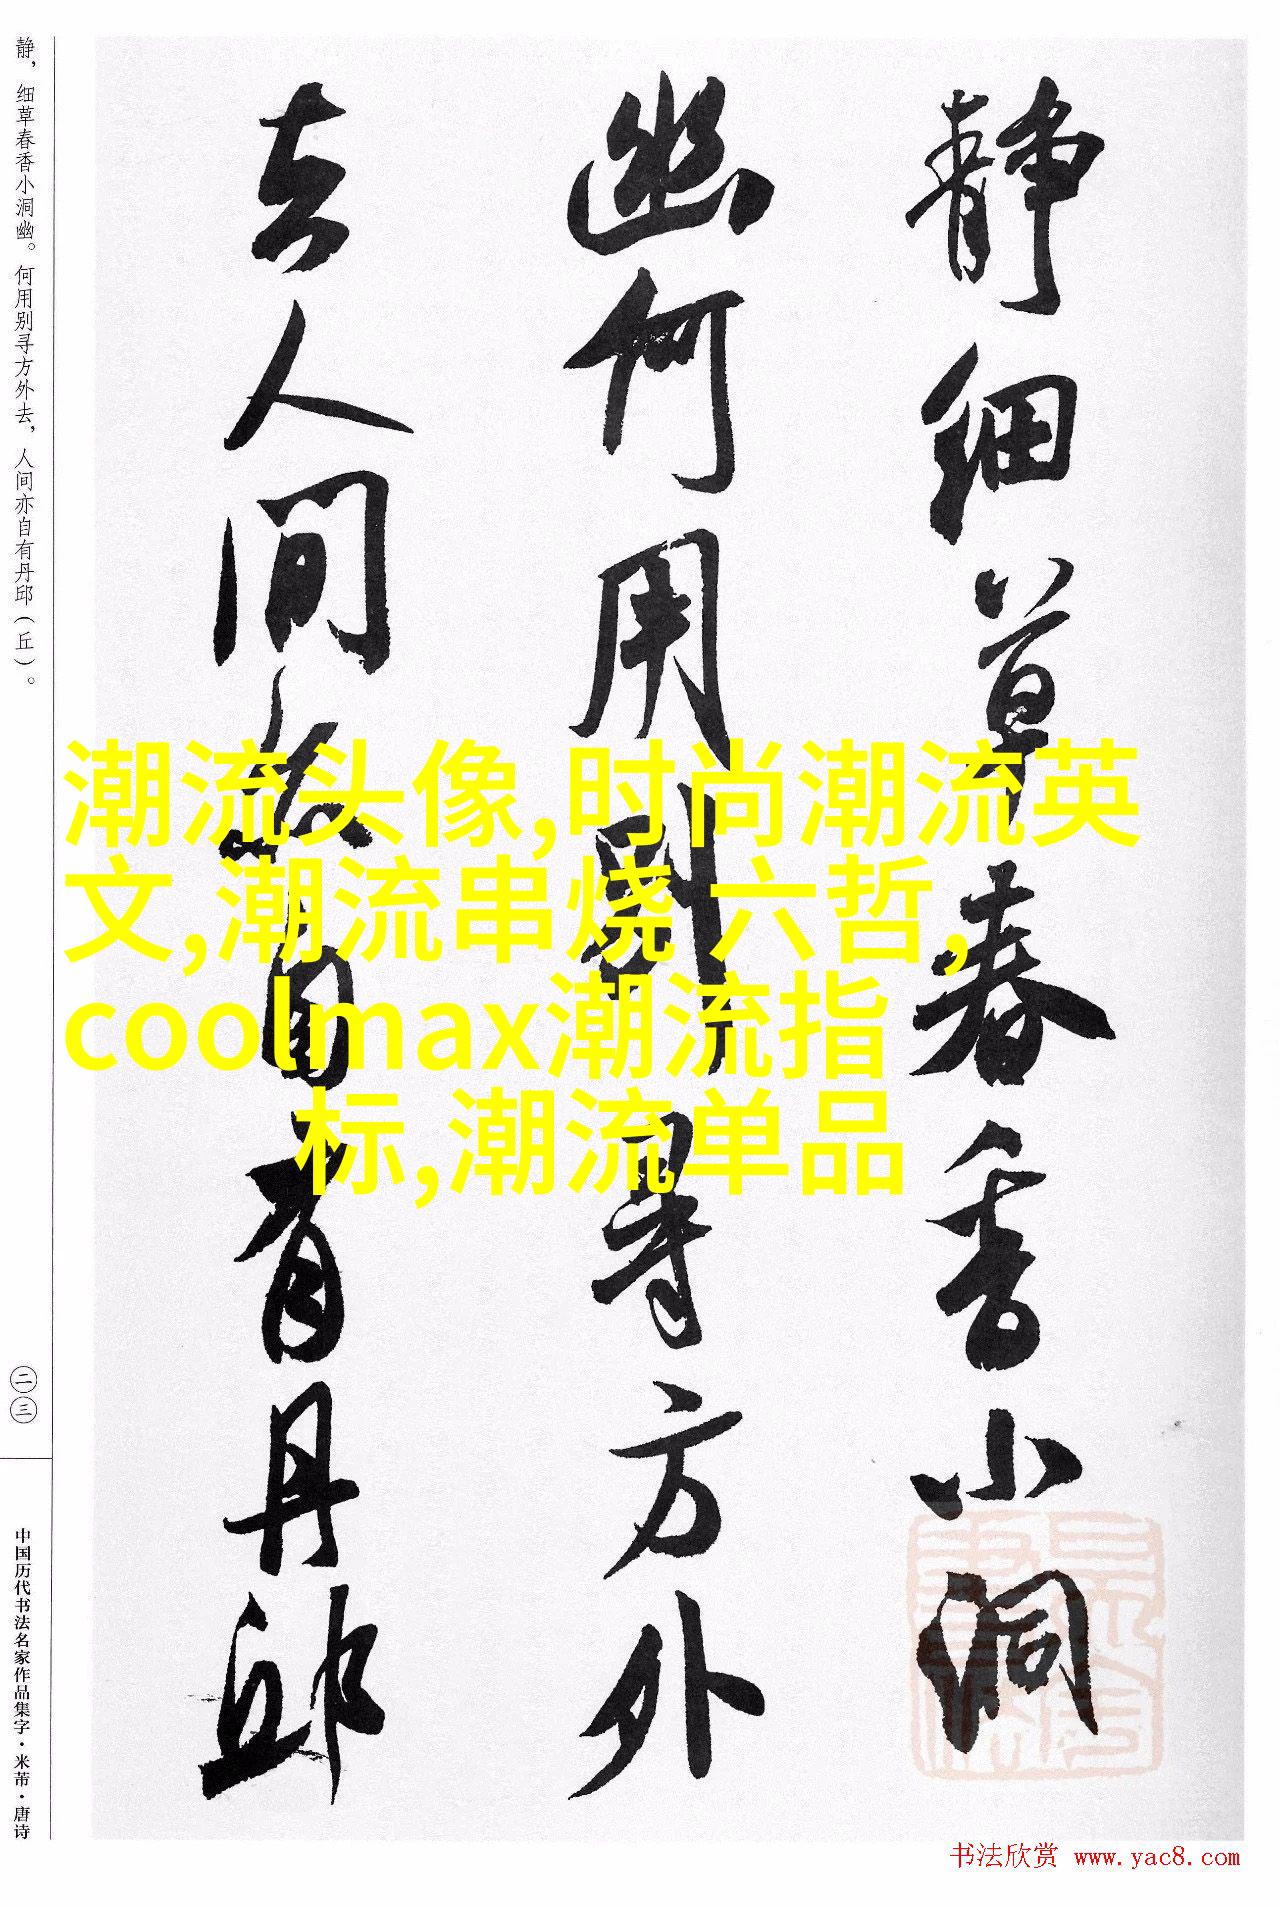 静细草春香小洞
幽何用别寻方外
去人间亦自有丹邱
静，细草春香小洞幽。何用别寻方外去，人间亦自有丹邱（丘）。
二三
中国历代书法名家作品集字·米芾·唐诗
潮流头像,时尚潮流英
文,潮流串烧 六哲,
coolmax潮流指
标,潮流单品
书法欣赏 www.yac8.com